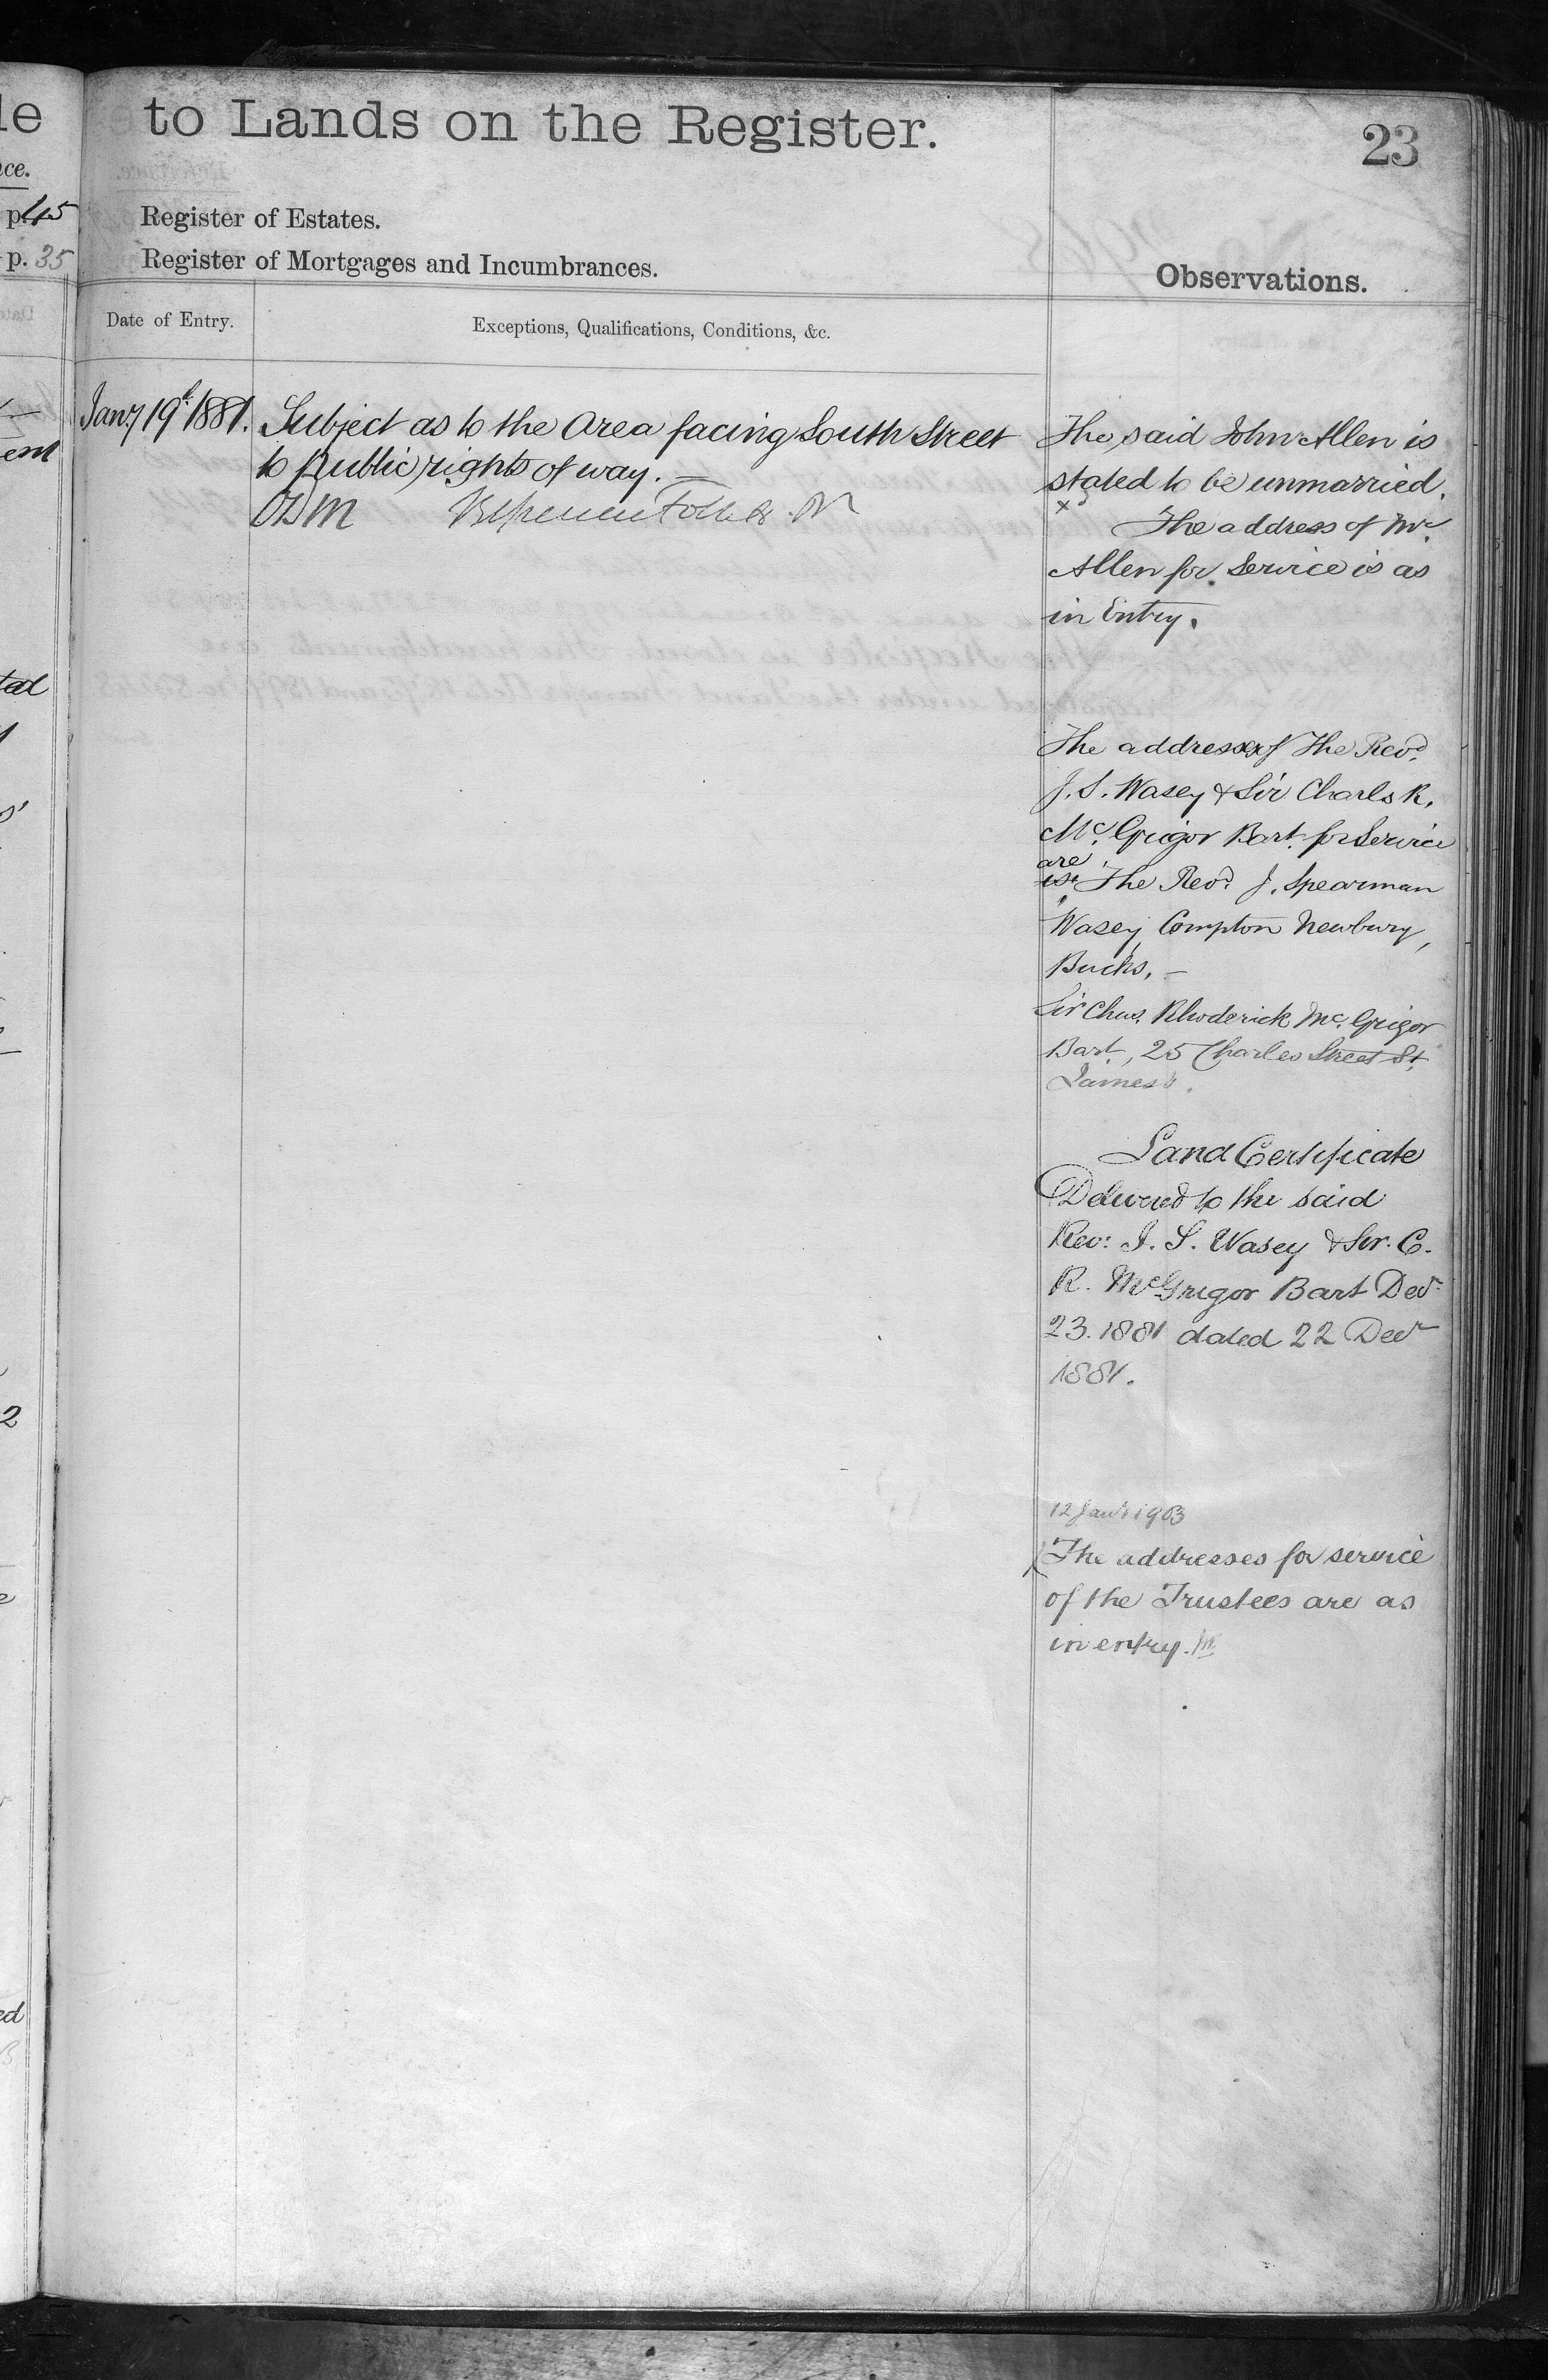 le
to Lands on the Register.
23
ce.
p. 45
Register of Estates.
p. 35
Register of Mortgages and Incumbrances.
Observations.
Date of Entry.
Exceptions, Qualifications, Conditions, &c.
Jany. 19th. 1881.
Subject as to the Area facing South Street
to public rights of way. —
The said John Allen is
stated to be unmarried.
The address of Mr.
Allen for Service is as
in Entry.
The addresses of The Revd.
J. S. Wasey & Sir Charles R.
McGrigor Bart. for Service
are
is: The Revd. J. Spearman
Wasey, Compton Newbury,
Bucks. —
Sir Chas. Rhoderick McGrigor
Bart., 25 Charles Street St.
James's.
Land Certificate
Delivered to the said
Rev: J. S. Wasey & Sir. C.
R. McGrigor Bart Decr
23. 1881 dated 22 Decr
1881.
12 Jany 1903
The addresses for service
of the Trustees are as
in entry.